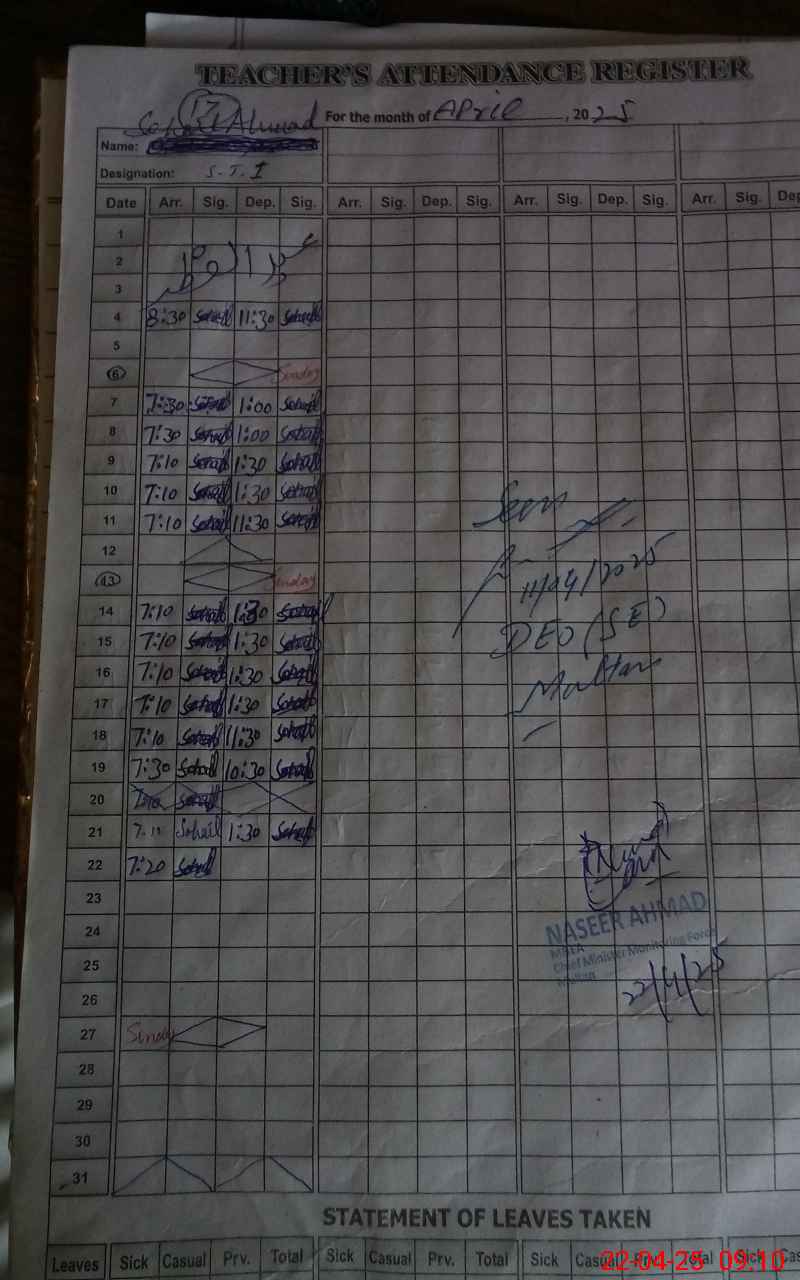 TEACHER'S ATTENDANCE REGISTER
17
Ahmad For the month of April, 2025
Name:
Designation: S.T.I
Date Arr. Sig. Dep. Sig. Arr. Sig. Dep. Sig. Arr. Sig. Dep. Sig. Arr. Sig. Dep
1
2
3
4 8:30 Sohail 11:30 Sohail
5
6 Sunday
7 7:30 Sohail 1:00 Sohail
8 7:30 Sohail 1:00 Sohail
9 7:10 Sohail 1:30 Sohail
10 7:10 Sohail 1:30 Sohail
11 7:10 Sohail 11:30 Sohail
12
13 Sunday
14 7:10 Sohail 1:30 Sohail
15 7:10 Sohail 1:30 Sohail
16 7:10 Sohail 1:30 Sohail
17 7:10 Sohail 1:30 Sohail
18 7:10 Sohail 11:30 Sohail
19 7:30 Sohail 10:30 Sohail
20 Sohail
21 7:10 Sohail 1:30 Sohail
22 7:20 Sohail
23
24
25
26
27 Sunday
28
29
30
31
Seen
11/04/2025
DEO (SE)
Multan
NASEER AHMAD
MEA
Chief Minister Monitoring Force
Multan
22/4/25
STATEMENT OF LEAVES TAKEN
Leaves Sick Casual Prv. Total Sick Casual Prv. Total Sick Casual Prv. Total Sick Cas
22-04-25 09:10